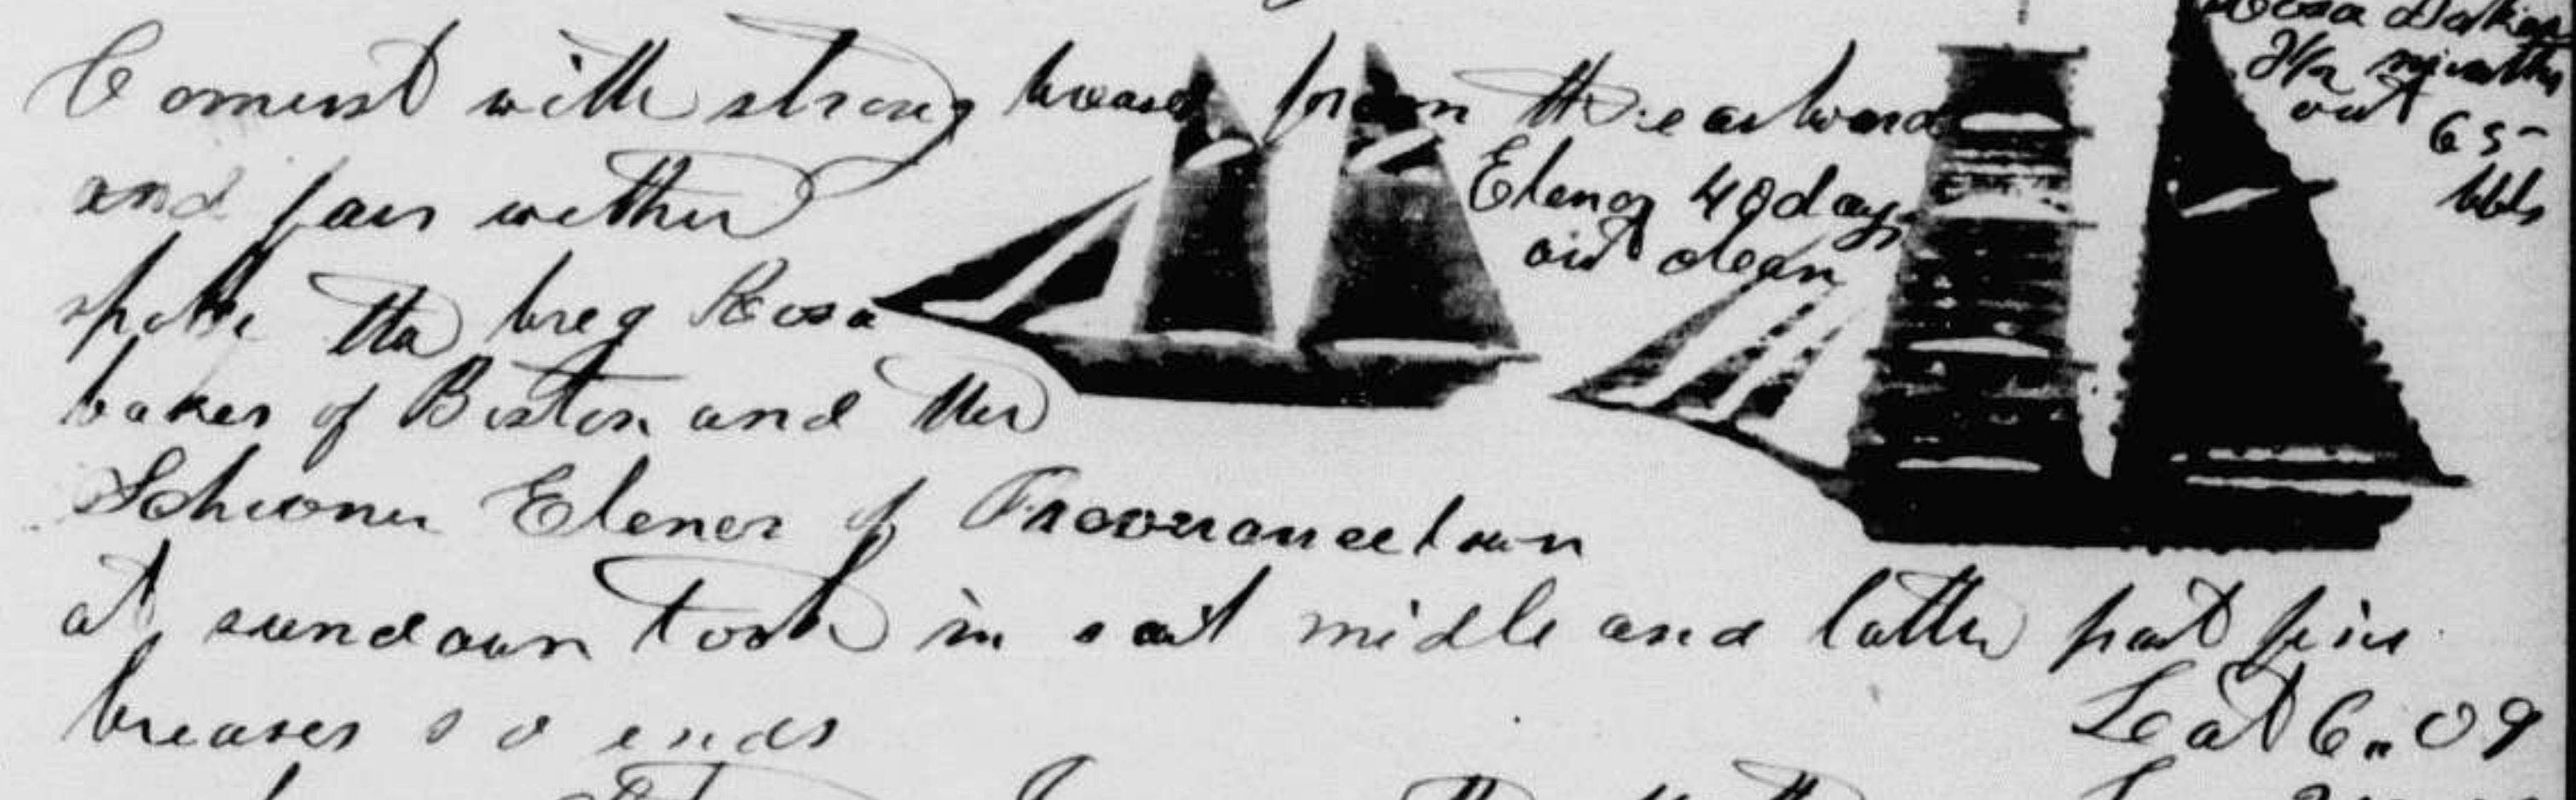 Comenst with strong breases from the eastward
and fair wether
spoke the breg Rosa
baker of Boston and the
Schooner Elenor of Provencetown
at sundown took in sail midle and latter part fine
breases so ends
Lat 6..09
Elenor 40 days
out clean
Rosa Baker
months
out 65
bbls